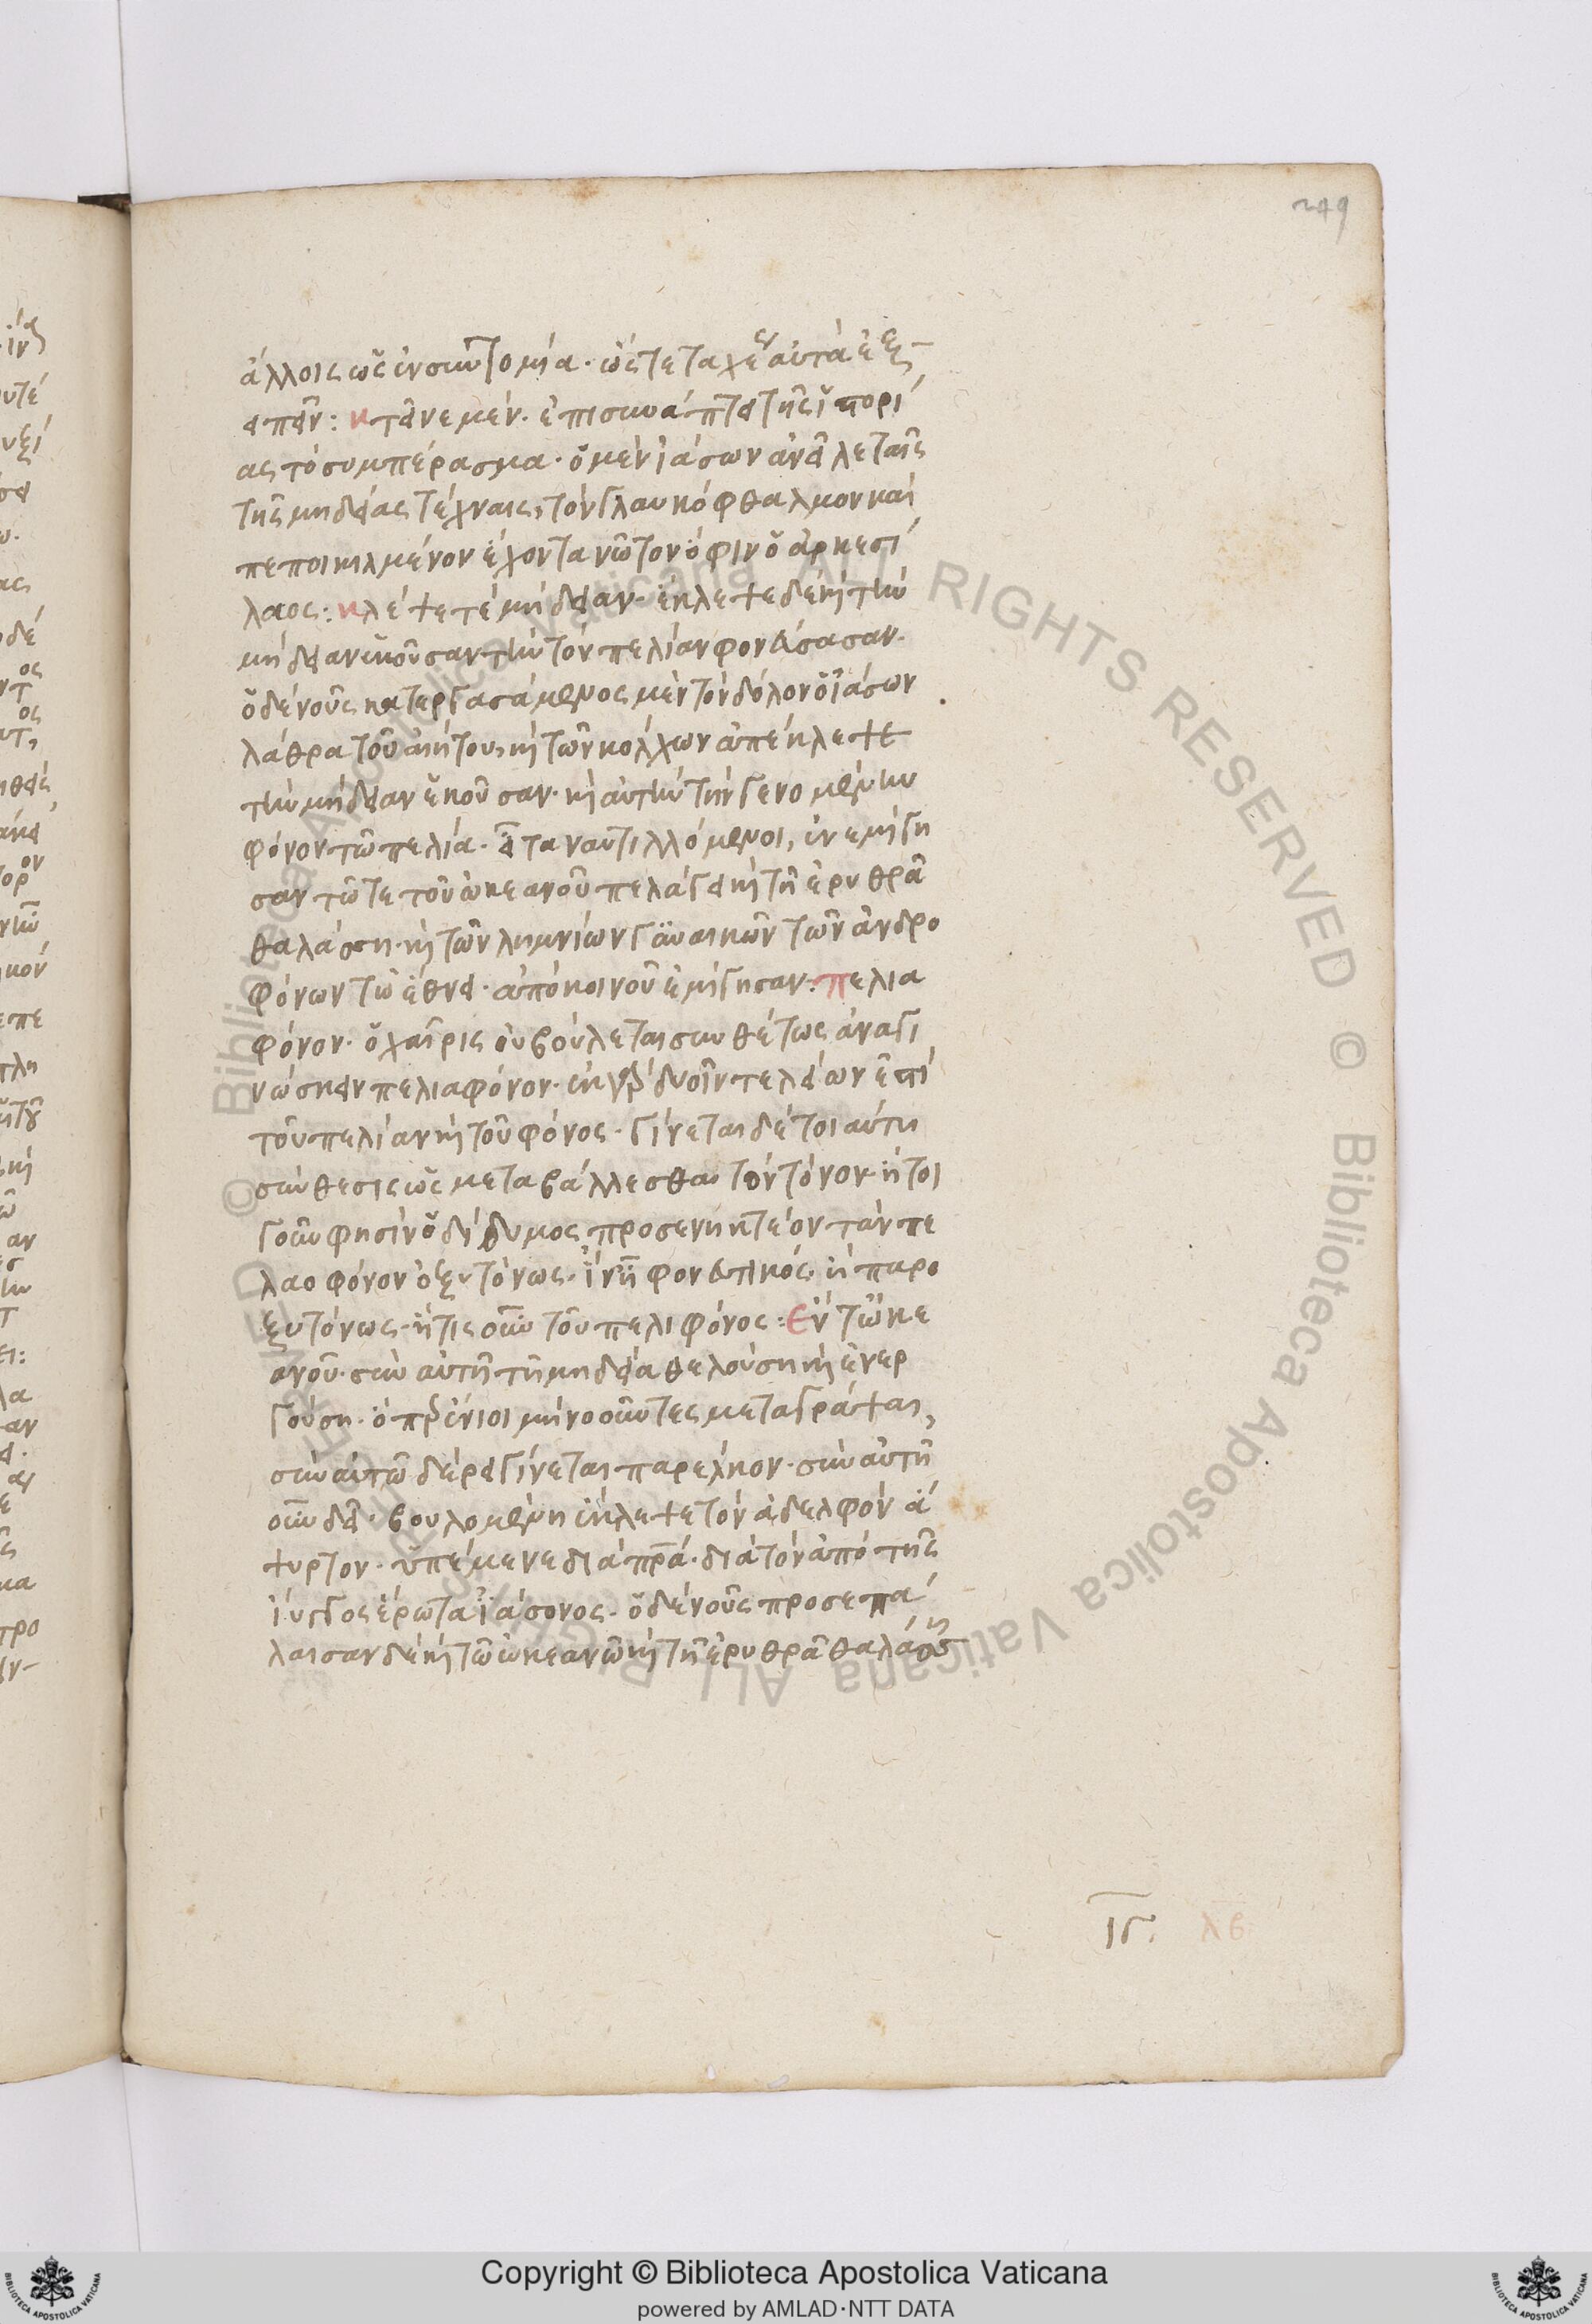 249
ἄλλοις ὡς ἐν συντομία· ὡς τε ταχέως αὐτὰ ἐξ
ειπεῖν: κτεῖνε μέν· ἐπισυνάπτει τῆς ἱστορί
ας τὸ συμπέρασμα· ὁ μὲν ἰάσων ἀνεῖλε ταῖς
τῆς μηδείας τέχναις, τὸν γλαυκόφθαλμον καὶ
πεποικιλμένον ἔχοντα νῶτον ὄφιν ὁ ἀρκεσί
λαος: κλέψε τέ μήδειαν· ἔκλεψε δὲ καὶ τὴν
μήδειαν ἑκοῦσαν τὴν τὸν πελίαν φονεύσασαν·
ὁ δὲ νοῦς κατεργασάμενος μὲν τὸν δόλον ὁ ἰάσων
λάθρα τοῦ αἰήτου, καὶ τῶν κόλχων ἀπέκλεψε
τὴν μήδειαν ἑκοῦσαν· καὶ αὐτὴν τὴν γενομένην
φόνον τῶ πελία· εἶτα ναυτιλλόμενοι, ἐνεμίγη
σαν τῶ τε τοῦ ὠκεανοῦ πελάγει καὶ τῆ ἐρυθρᾶ
θαλάσση· καὶ τῶν λημνίων γυναικῶν τῶν ἀνδρο
φόνων τῶ ἔθνει· ἀπὸ κοινοῦ ἐμίγησαν: πελία
φόνον· ὁ χαῖρις οὐ βούλεται συνθέτως ἀναγι
νώσκειν πελιαφόνον· ἐκ γὰρ δυοῖν τελείων ἐστὶ
τοῦ πελίαν καὶ τοῦ φόνος· γίνεται δὲ τοιαύτη
σύνθεσις ὡς μεταβάλλεσθαι τὸν τόνον· ἤτοι
γοῦν φησὶν ὁ δίδυμος προσενηκτέον τὰν πε
λαοφόνον ὀξυτόνως· ἵν' ῇ φονευτικός· ἢ παρο
ξυτόνως· ἥτις οὖν τοῦ πελίφόνος: Ἐν τ' ὠκε
ανοῦ· σὺν αὐτῆ τῆ μηδεία θελούση καὶ ἐνερ
γούση· ὅπερ ἔνιοι μὴ νοοῦντες μεταγράψαι,
σὺν αὐτῶ δέρει γίνεται παρέλκον· σὺν αὐτῆ
οὖν δεῖ· βουλομένη ἔκλεψε τὸν ἀδελφὸν ἄ
ψυρτον· ὑπέμενε διὰ πρα· διὰ τὸν ἀπὸ τῆς
ἴυγγος ἔρωτα ἰάσονος· ὁ δὲ νοῦς προσεπέ
λασαν δὲ καὶ τῶ ὠκεανῶ καὶ τῆ ἐρυθρᾶ θαλάσση
ιγ. λβ